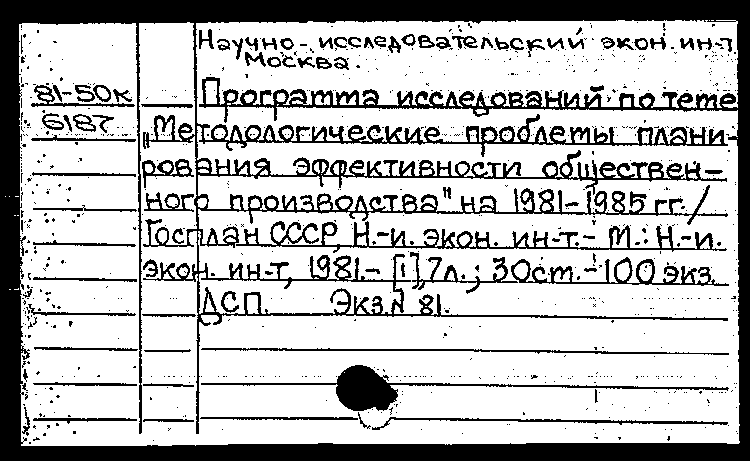 Научно-исследовательский экон. ин-т.
Москва.
81-50к
6187
Программа исследований по теме
„Методологические проблемы плани-
рования эффективности обществен-
ного производства" на 1981-1985 гг. /
Госплан СССР, Н.-и. экон. ин-т.- М.: Н.-и.
экон. ин-т, 1981.- [1], 7л.; 30ст.- 100 экз.
ДСП. Экз. № 81.